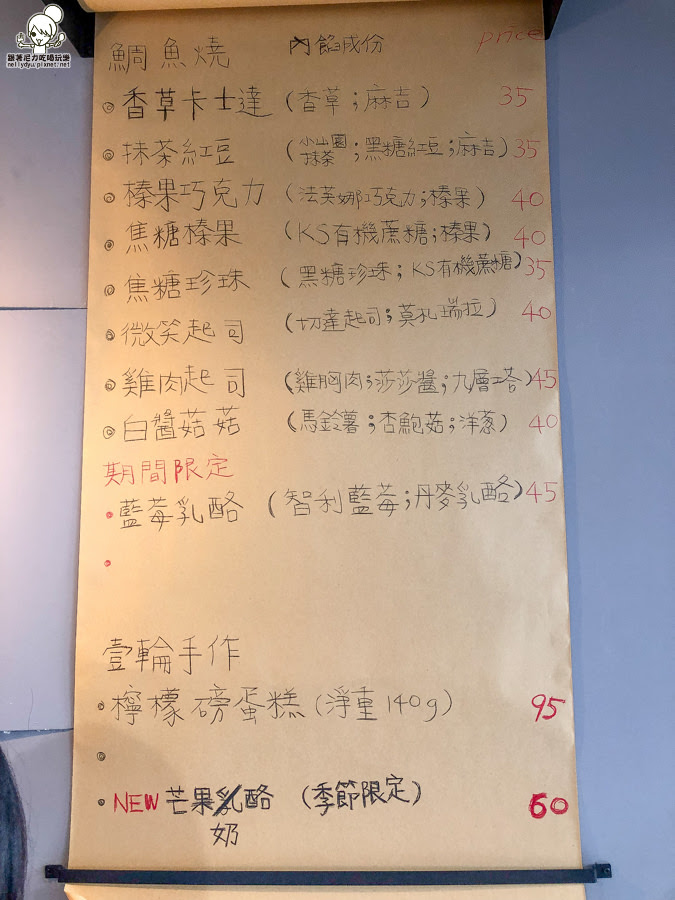 跟著尼力吃喝玩樂
nellydyu.pixnet.net
鯛魚燒 內餡成份 price
香草卡士達 (香草;麻吉) 35
抹茶紅豆 (小山園抹茶;黑糖紅豆;麻吉) 35
榛果巧克力 (法芙娜巧克力;榛果) 40
焦糖榛果 (KS有機蔗糖;榛果) 40
焦糖珍珠 (黑糖珍珠;KS有機蔗糖) 35
微笑起司 (切達起司;莫扎瑞拉) 40
雞肉起司 (雞胸肉;莎莎醬;九層塔) 45
白醬菇菇 (馬鈴薯;杏鮑菇;洋蔥) 40
期間限定
藍莓乳酪 (智利藍莓;丹麥乳酪) 45
壹輪手作
檸檬磅蛋糕 (淨重140g) 95
NEW 芒果乳酪 (季節限定) 60
奶